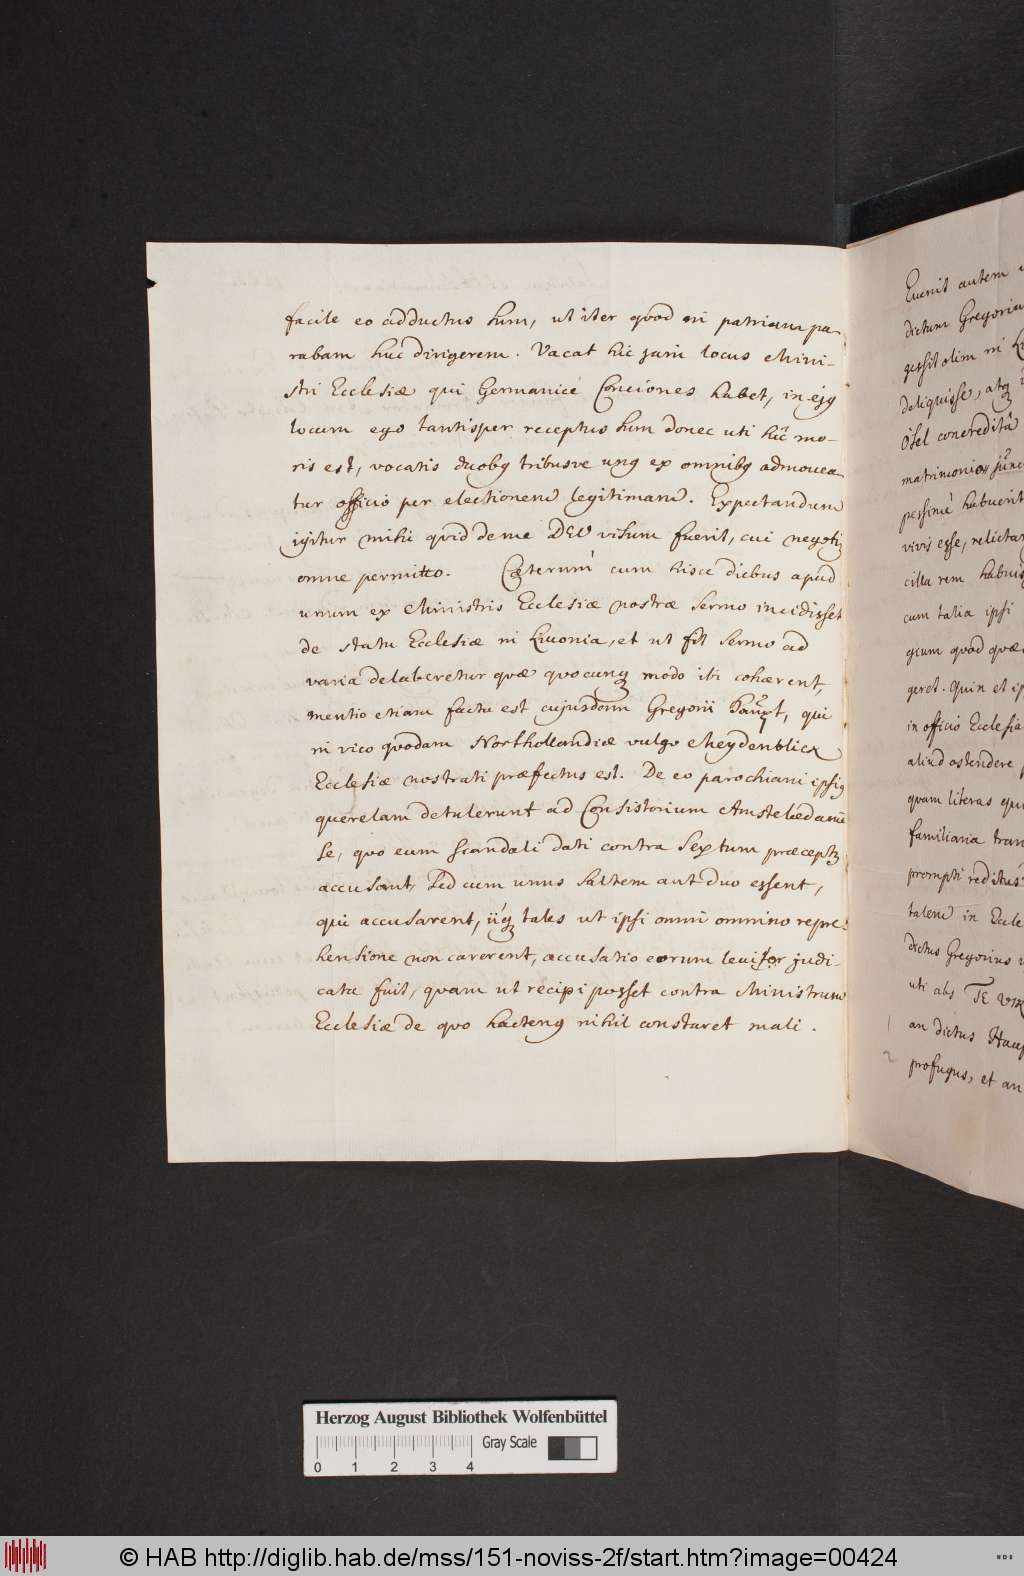 facile eo adductus sum, ut iter quod in patriam pa-
rabam huc dirigerem. Vacat hic jam locus Mini-
stri Ecclesiæ qui Germanicè Conciones habet, in ejꝰ
locum ego tantisper receptus sum donec uti hîc mo-
ris est, vocatis duobꝰ tribusve unꝰ ex omnibꝰ admovea-
tur officio per electionem legitimam. Expectandum
igitur mihi quid de me DEO visum fuerit, cui negotiũ
omne permitto. Cæterum cum hisce diebus apud
unum ex Ministris Ecclesiæ nostræ sermo incidisset
de statu Ecclesiæ in Livonia, et ut fit sermo ad
varia delaberetur quæ quocunqꝫ modo ibi cohærent,
mentio etiam facta est cujusdam Gregorii Haupt, qui
in vico quodam Northollandiæ vulgo Meydenblick
Ecclesiæ nostrati præfectus est. De eo parochiani ipsiꝰ
querelam detulerunt ad Consistorium Amstelædamẽ
se, quo eum scandali dati contra Sextum præceptũ
accusant, Sed cum unus saltem aut duo essent,
qui accusarent, iiqꝫ tales ut ipsi omni omnino repre-
hensione non carerent, accusatio eorum levior judi-
cata fuit, quam ut recipi posset contra Ministrum
Ecclesiæ de quo hactenꝰ nihil constaret mali.
Evenit autem
dictum Gregoriu
gessit olim in
deliquisse, atqꝫ
Ösel concreditâ
matrimonio junc
pessimè habuerit
vivis esse, relicta
cilla rem habuis
cum talia ipsi
gium quod quæ
geret. Quin et ip
in officio Ecclesia
aliud ostendere
quam literas qu
familiaria tran
prompti reditus
talem in Eccle
dictus Gregorius
uti abs TE VIR
an dictus Haup
profugus, et an
Herzog August Bibliothek Wolfenbüttel
Gray Scale
0 1 2 3 4
© HAB http://diglib.hab.de/mss/151-noviss-2f/start.htm?image=00424